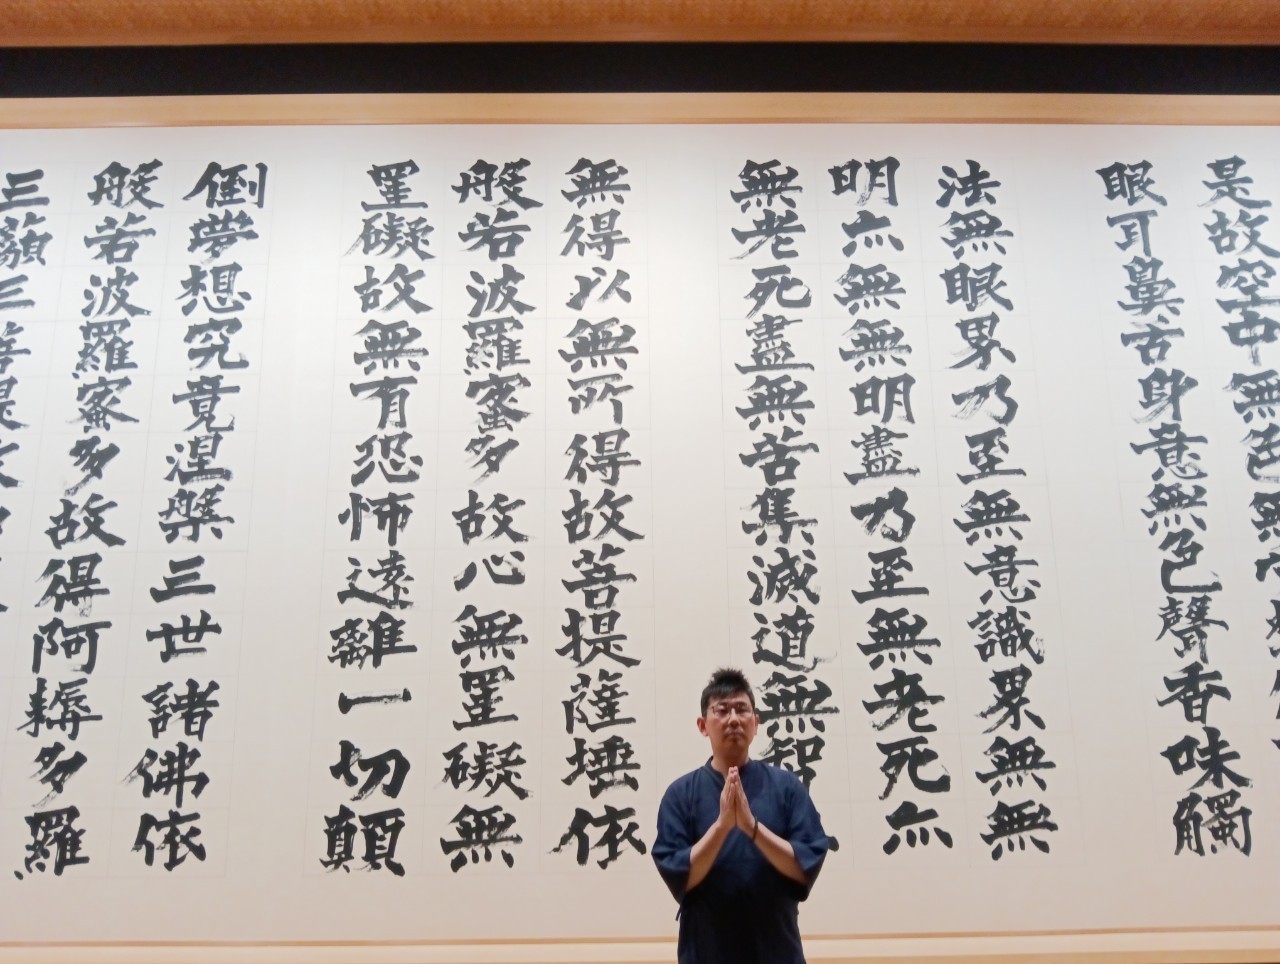 是故空中無色無
眼耳鼻舌身意無色聲香味觸
法無眼界乃至無意識界無無
明亦無無明盡乃至無老死亦
無老死盡無苦集滅道無智
無得以無所得故菩提薩埵依
般若波羅蜜多故心無罣礙無
罣礙故無有恐怖遠離一切顛
倒夢想究竟涅槃三世諸佛依
般若波羅蜜多故得阿耨多羅
三藐三菩提故